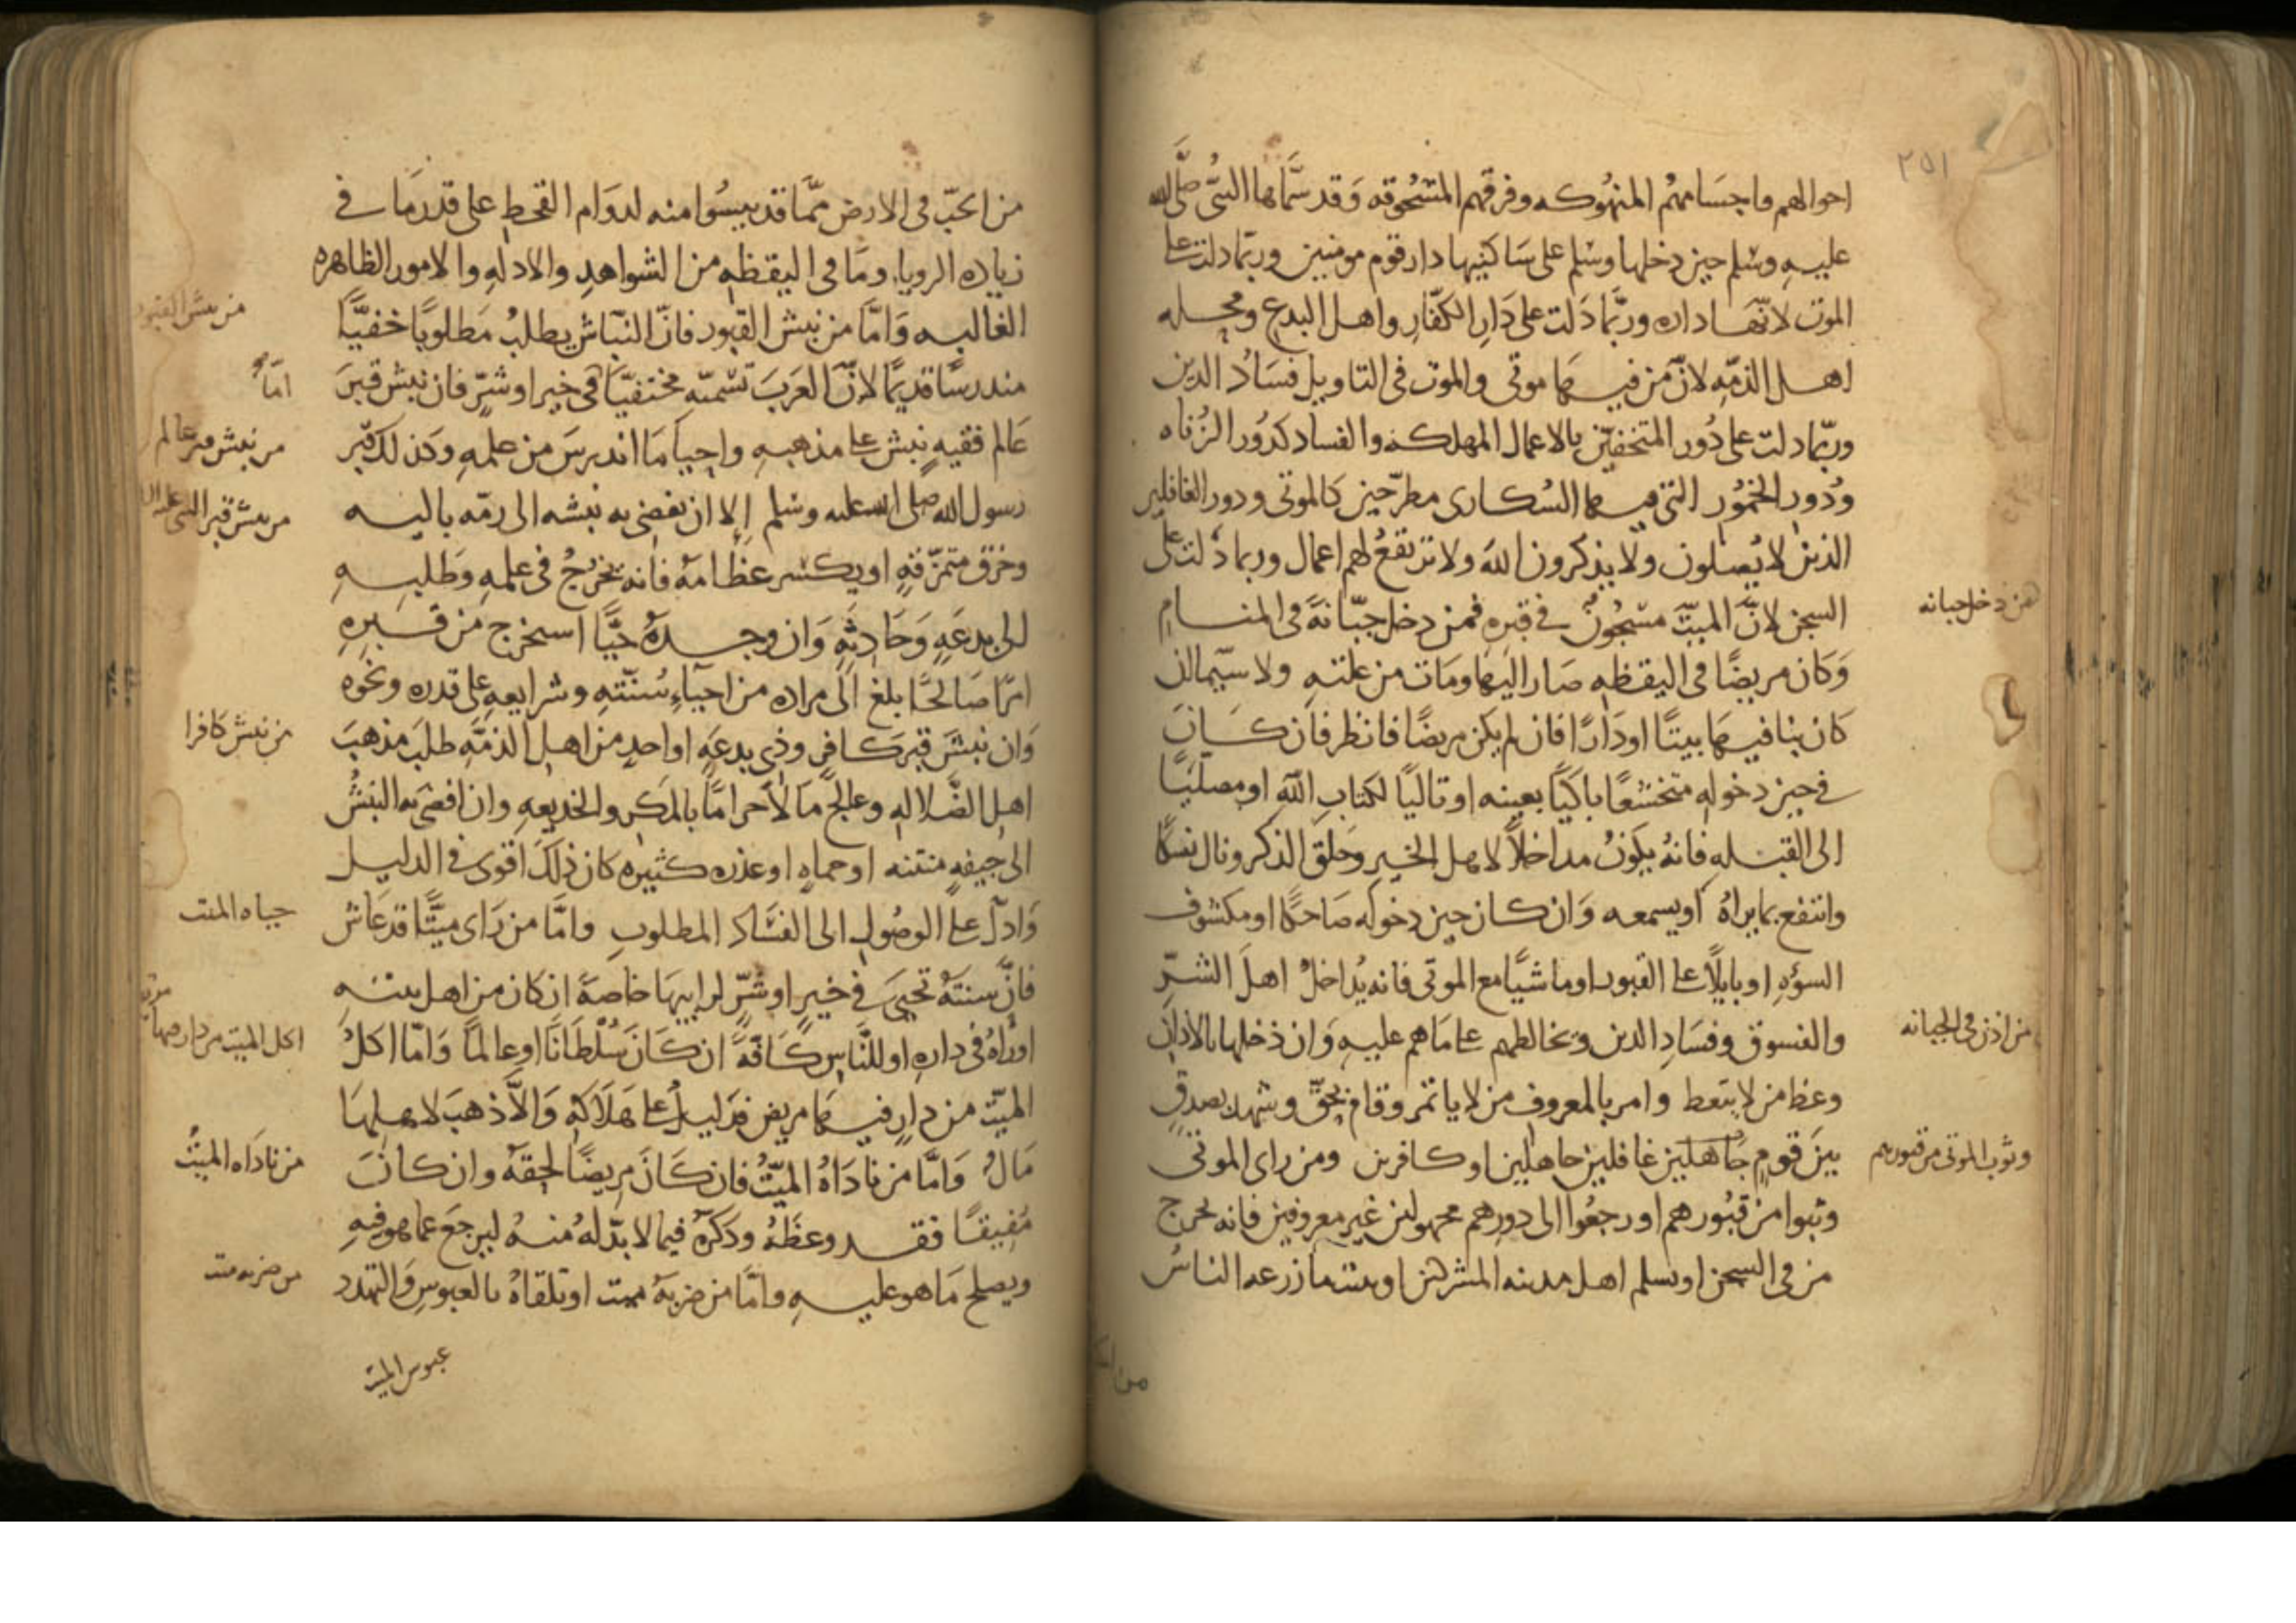 ٢٥١
احوالهم واجسامهم المنهوكه وفرقهم المسحوقه وقد سماها النبى صلى الله
عليه وسلم حين دخلها وسلم على ساكنيها دار قوم مومنين وربما دلت على
الموت لانها داره وربما دلت على دار الكفار واهل البدع ومحله
اهل الذمه لان من فيها موتى والموت فى التاويل فساد الدين
وربما دلت على دور المتخفين بالاعمال المهلكه والفساد كدور الزناه
ودور الخمور التى فيها السكارى مطرحين كالموتى ودور الغافلين
الذين لا يصلون ولا يذكرون الله ولا ترتفع لهم اعمال وربما دلت على
السجن لان الميت مسجون فى قبره فمن دخل جبانة فى المنام
وكان مريضا فى اليقظه صار اليها ومات من علته ولا سيما ان
كان بنا فيها بيتا او دارا فان لم يكن مريضا فانظر فان كان
فى حين دخوله متخشعا باكيا بعينه او تاليا لكتاب الله او مصليا
الى القبله فانه يكون مداخلا لاهل الخير وحلق الذكر ونال نسكا
وانتفع بما يراه او يسمعه وان كان حين دخوله ضاحكا او مكشوف
السؤه او بايلا على القبور او ماشيا مع الموتى فانه يداخل اهل الشر
والفسوق وفساد الدين ويخالطهم على ما هم عليه وان دخلها بالاذان
وعظ من لا يتعظ وامر بالمعروف من لا ياتمر وقام بحق وشهد بصدق
بين قوم جاهلين غافلين جاهلين او كافرين ومن راى الموتى
وثبوا من قبورهم او رجعوا الى دورهم مجهولين غير معروفين فانه يخرج
من فى السجن او يسلم اهل مدينه المشركين او ينبت ما زرعه الناس
من دخل جبانه
من اذن فى الجبانه
وثوب الموتى من قبورهم
من الحب فى الارض مما قد ييسوا منه لدوام القحط على قدر ما فى
زياده الرويا وما فى اليقظه من الشواهد والادله والامور الظاهره
الغالبه واما من نبش القبور فان النباش يطلب مطلوبا خفيا
مندرسا قديما لان العرب تسميه مختفيا فى خير او شر فان نبش قبر
عالم فقيه نبش على مذهبه واحيا ما اندرس من علمه وكذلك قبر
رسول الله صلى الله عليه وسلم الا ان يفضى به نبشه الى رمه باليه
وخرق متمزقه او يكسر عظامه فانه يخرج فى علمه وطلبه
الى بدعه وحادثه وان وجده حيا استخرج من قبره
امرا صالحا بلغ الى مراده من احياء سنته وشرايعه على قدره ونحوه
وان نبش قبر كافر وذى بدعه او احد من اهل الذمه طلب مذهب
اهل الضلاله وعالج مالا حراما بالمكر والخديعه وان افضى به النبش
الى جيفه منتنه او حماه او عذره كثيره كان ذلك اقوى فى الدليل
وادل على الوصول الى الفساد المطلوب واما من راى ميتا قد عاش
فان سنته تحيى فى خير او شر لرابيها خاصة ان كان من اهل بيته
او راه فى داره او للناس كافة ان كان سلطانا او عالما واما اكل
الميت من دار فيها مريض فدليل على هلاكه والا ذهب لاهلها
مال واما من ناداه الميت فان كان مريضا لحقه وان كان
مفيقا فقد وعظه وذكره فيما لا بد له منه ليرجع عما هو فيه
ويصلح ما هو عليه واما من ضربه ميت او تلقاه بالعبوس والتهدد
من نبش القبور
من نبش قبر عالم
من نبش قبر النبى
من نبش كافرا
حياه الميت
اكل الميت من دار
من ناداه الميت
من ضربه ميت
عبوس الميت